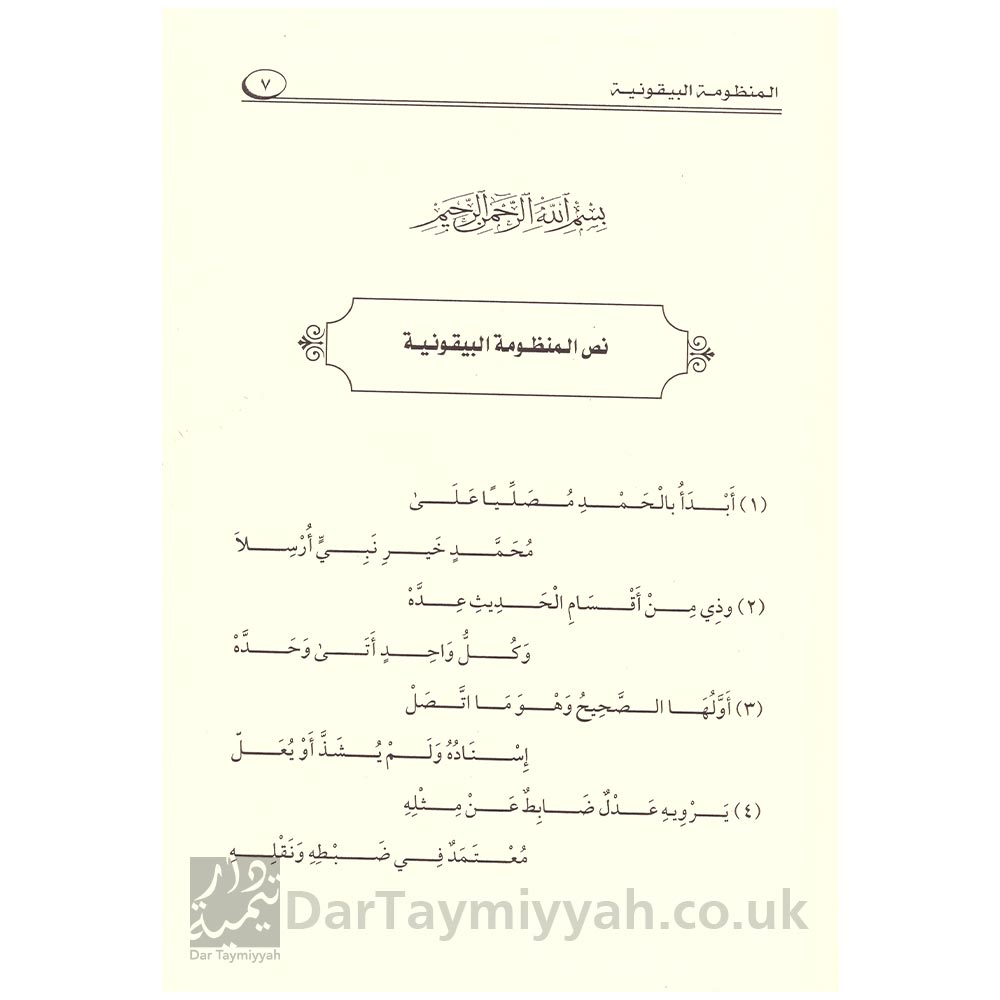 المنظومة البيقونية
٧
بِسْمِ ٱللَّهِ ٱلرَّحْمَٰنِ ٱلرَّحِيمِ
نص المنظومة البيقونية
(١) أَبْدَأُ بالْحَمْدِ مُصَلِّيًا عَلَىٰ
مُحَمَّدٍ خَيرِ نَبِيٍّ أُرْسِلاَ
(٢) وذِي مِنْ أَقْسَامِ الْحَدِيثِ عِدَّهْ
وَكُلُّ وَاحِدٍ أَتَىٰ وَحَدَّهْ
(٣) أَوَّلُهَا الصَّحِيحُ وَهْوَ مَا اتَّصَلْ
إِسْنَادُهُ وَلَمْ يُشَذَّ أَوْ يُعَلّ
(٤) يَرْوِيهِ عَدْلٌ ضَابِطٌ عَنْ مِثْلِهِ
مُعْتَمَدٌ فِي ضَبْطِهِ وَنَقْلِهِ
دار تيمية
Dar Taymiyyah
DarTaymiyyah.co.uk